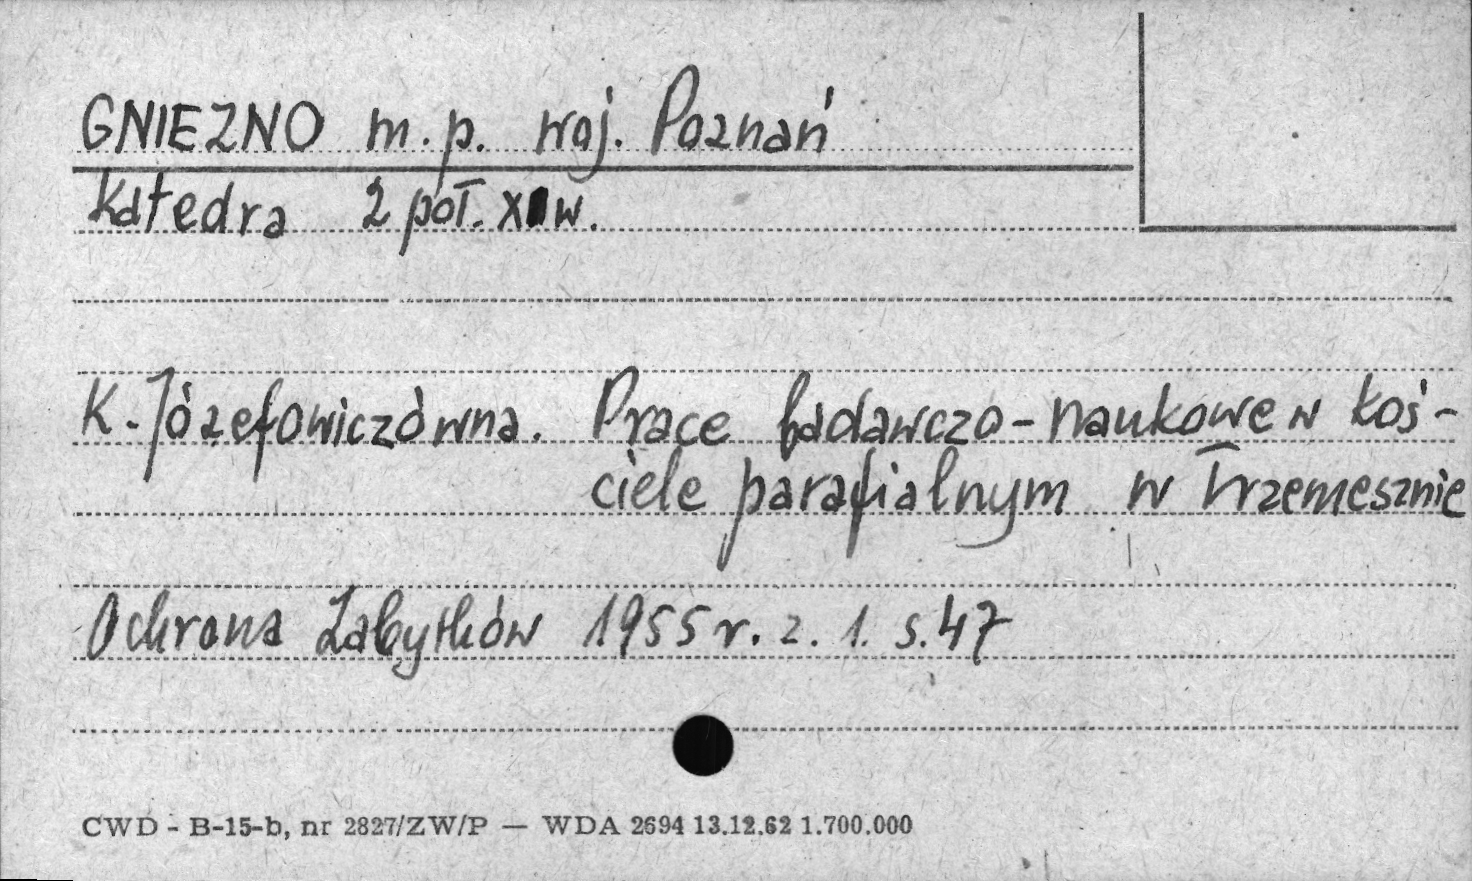 GNIEZNO m.p. woj. Poznań
Katedra 2 poł. X w.
K. Józefowiczówna. Prace badawczo-naukowe w koś-
ciele parafialnym w Trzemesznie
Ochrona Zabytków 1955 r. z. 1. s. 47
CWD - B-15-b, nr 2827/ZW/P — WDA 2694 13.12.62 1.700.000